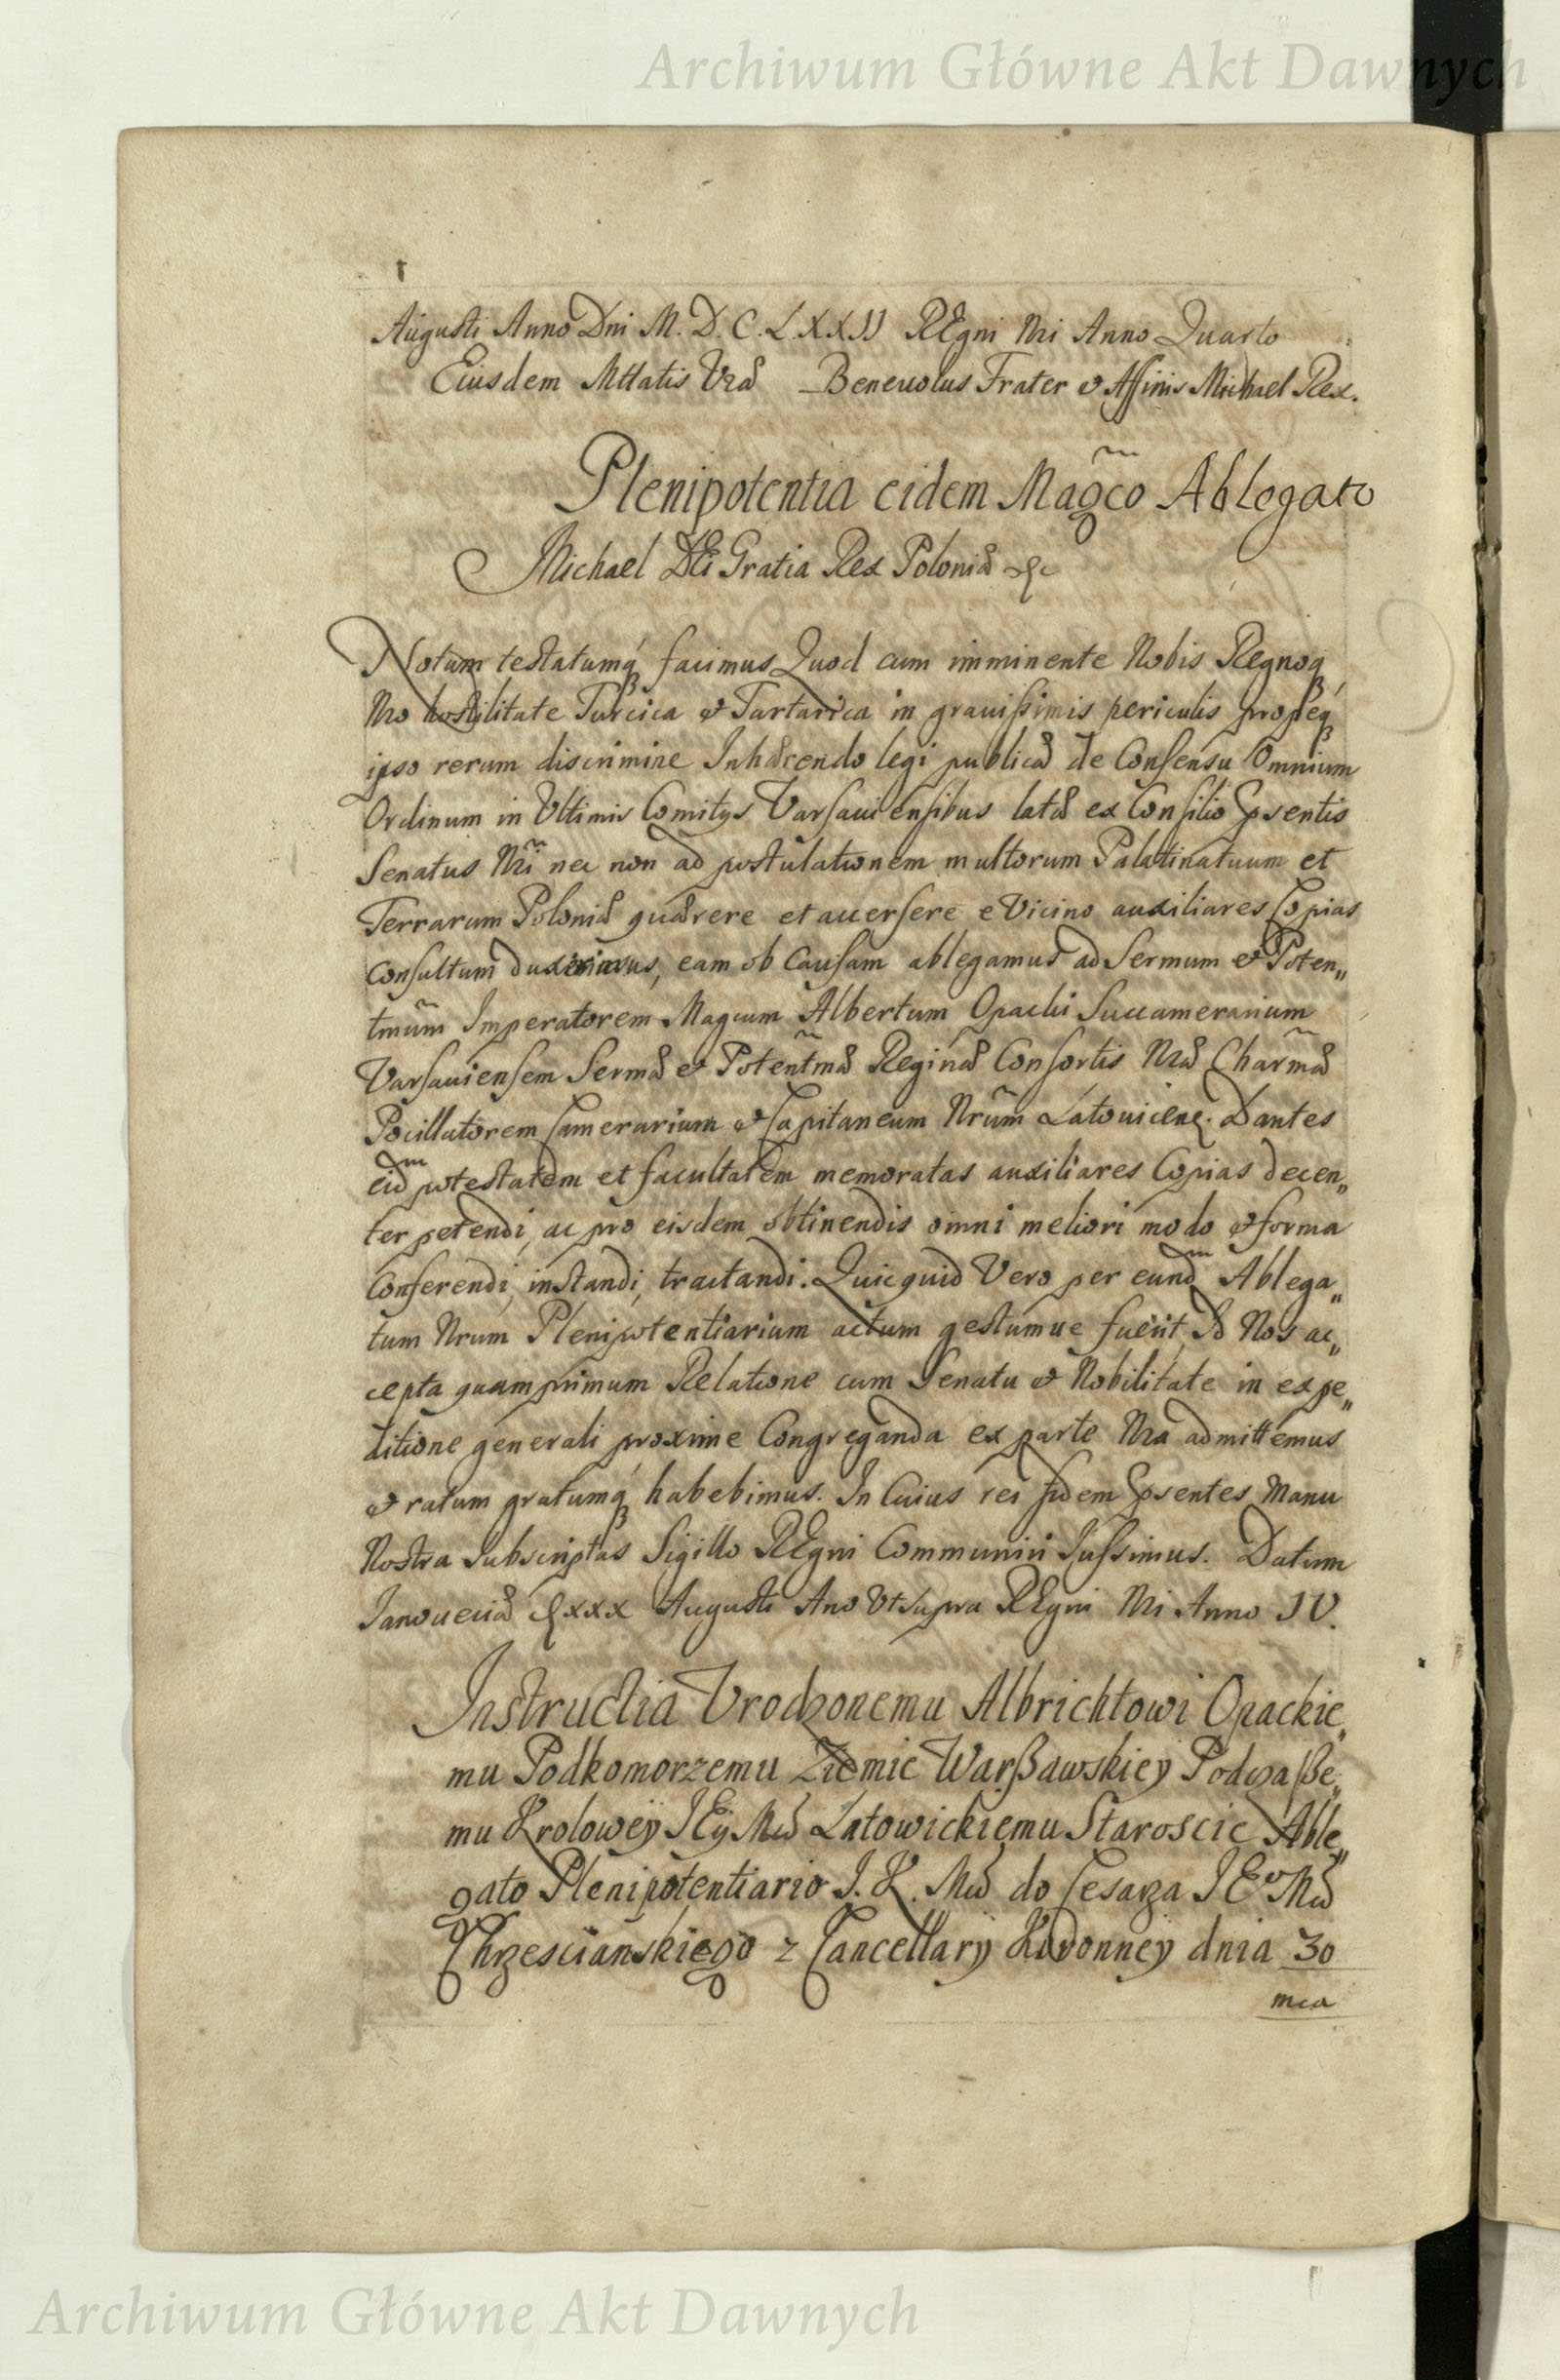 Archiwum Główne Akt Dawnych
Augusti Anno Dni M. D. C. LXXII REgni Nri Anno Quarto
Eiusdem Mttatis Vræ Beneuolus Frater & Affinis Michael Rex.
Plenipotentia eidem Magco Ablegato
Michael DEi Gratia Rex Poloniæ &c
Notum testatumq, facimus Quod cum imminente Nobis Regnoq,
Nro hostilitate Turcica & Tartarica in grauissimis periculis propeq,
ipso rerum discrimine Inhærendo legi publicæ de Consensu Omnium
Ordinum in Vltimis Comitys Varsauiensibus latæ ex Consilio Psentis
Senatus Nri nec non ad postulationem multorum Palatinatuum et
Terrarum Poloniæ quærere et accersere e Vicino auxiliares Copias
Consultum duximus, eam ob Causam ablegamus ad Sermum & Poten„
tmum Imperatorem Magcum Albertum Opacki Succamerarium
Varsauiensem Sermæ & Potentmæ Reginæ Consortis Nræ Charmæ
Pocillatorem Camerarium & Capitaneum Nrum Latouicen. Dantes
eidm potestatem et facultatem memoratas auxiliares Copias decen„
ter petendi, ac pro eisdem obtinendis omni meliori modo & forma
Conferendi, instandi, tractandi. Quicquid Vero per eundm Ablega„
tum Nrum Plenipotentiarium actum gestumue fuerit, Id Nos ac„
cepta quamprimum Relatione cum Senatu & Nobilitate in expe„
ditione generali proxime Congreganda ex parte Nra admittemus
& ratum gratumq, habebimus. In Cuius rei fidem Psentes Manu
Nostra Subscriptas Sigillo REgni Communiri Iussimus. Datum
Ianoueciæ xxx Augusti Ano Vt supra REgni Nri Anno IV.
Instructia Vrodzonemu Albrichtowi Opackie„
mu Podkomorzemu Ziemie Warßawskiey Podczaße„
mu Krolowey IEy Mci Latowickiemu Staroscie Able„
gato Plenipotentiario I. K. Mci do Cesarza IEo Mci
Chrzescianskiego z Cancellary Koronney dnia 30
mca
Archiwum Główne Akt Dawnych